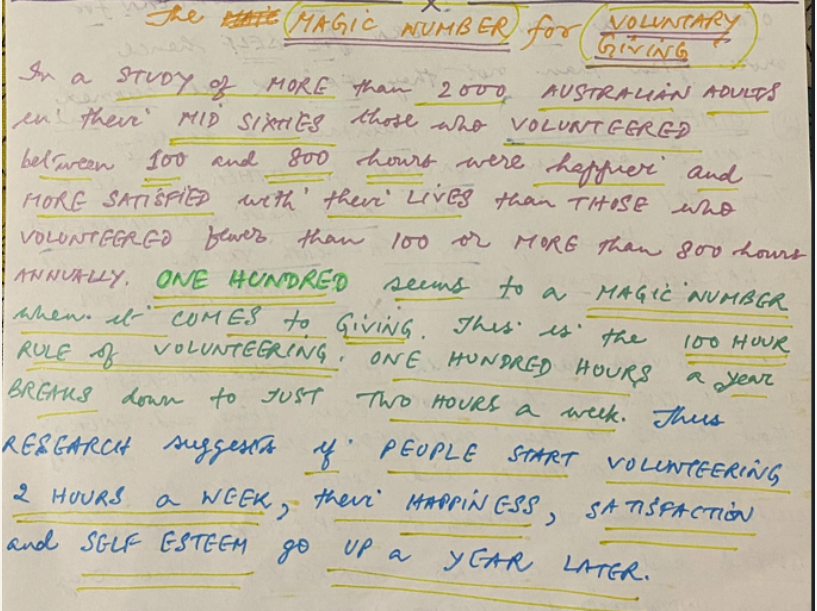 The MAGIC NUMBER for VOLUNTARY
GIVING
In a STUDY of MORE than 2000 AUSTRALIAN ADULTS
in their MID SIXTIES those who VOLUNTEERED
between 100 and 800 hours were happier and
MORE SATISFIED with their LIVES than THOSE who
VOLUNTEERED fewer than 100 or MORE than 800 hours
ANNUALLY. ONE HUNDRED seems to a MAGIC NUMBER
when it COMES to GIVING. This is the 100 HOUR
RULE of VOLUNTEERING. ONE HUNDRED HOURS a year
BREAKS down to JUST TWO HOURS a week. Thus
RESEARCH suggests if PEOPLE START VOLUNTEERING
2 HOURS a WEEK, their HAPPINESS, SATISFACTION
and SELF ESTEEM go UP a YEAR LATER.